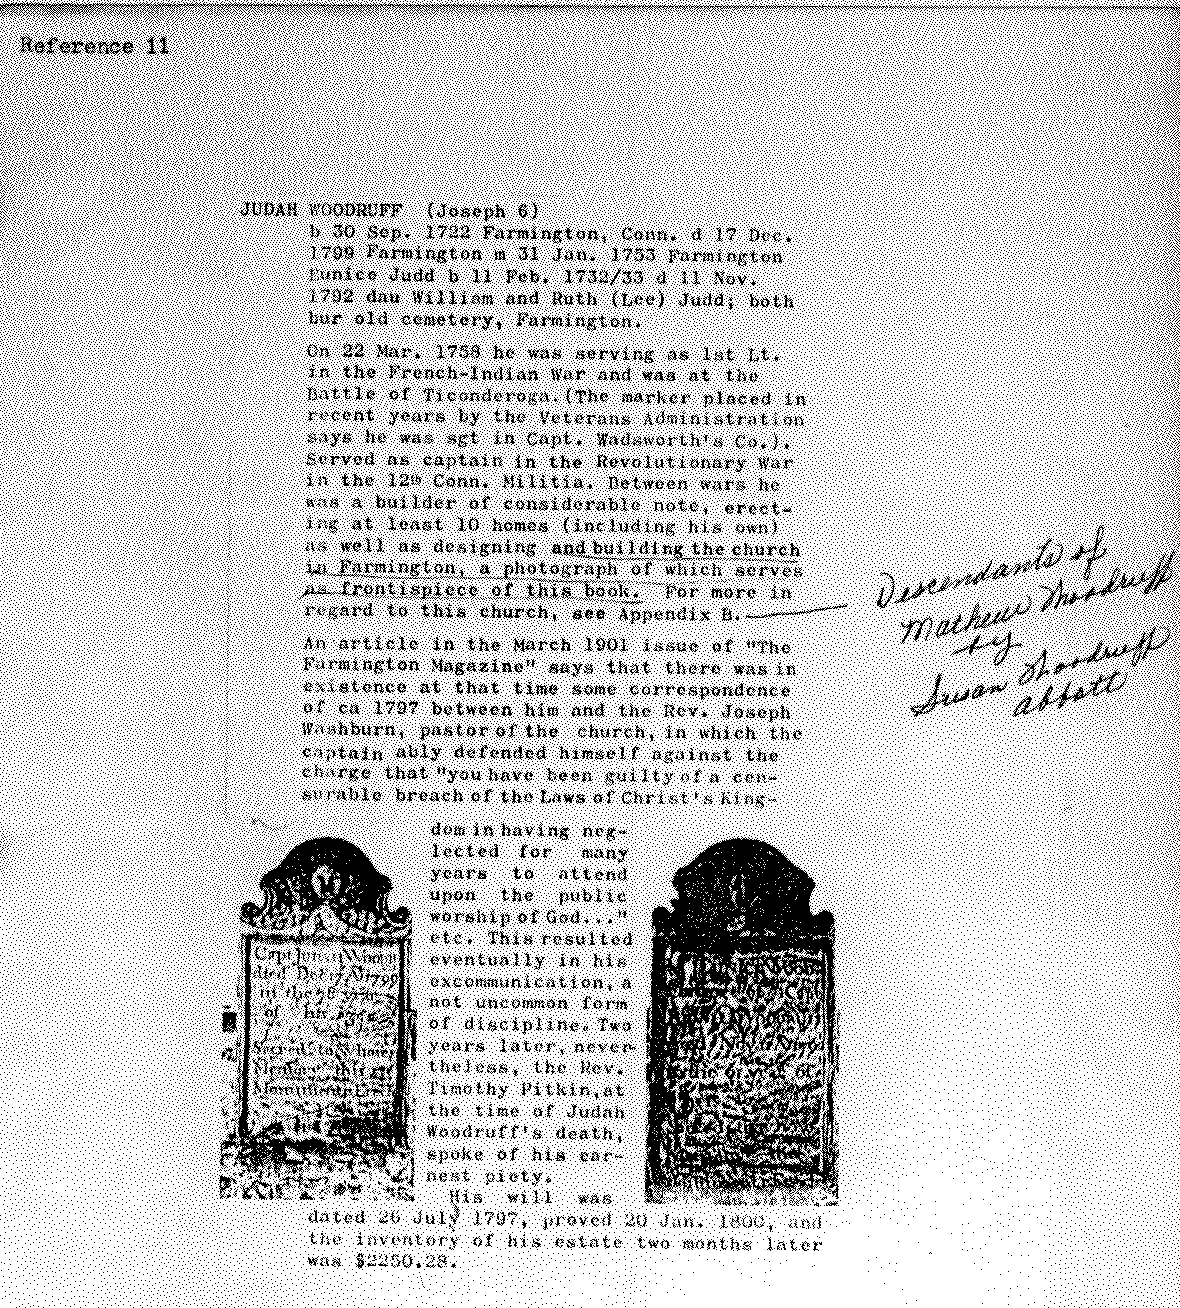 Reference 11
JUDAH WOODRUFF (Joseph 6)
b 30 Sep. 1722 Farmington, Conn. d 17 Dec.
1799 Farmington m 31 Jan. 1753 Farmington
Eunice Judd b 11 Feb. 1732/33 d 11 Nov.
1792 dau William and Ruth (Lee) Judd; both
bur old cemetery, Farmington.
On 22 Mar. 1758 he was serving as 1st Lt.
in the French-Indian War and was at the
Battle of Ticonderoga.(The marker placed in
recent years by the Veterans Administration
says he was sgt in Capt. Wadsworth's Co.).
Served as captain in the Revolutionary War
in the 12th Conn. Militia. Between wars he
was a builder of considerable note, erect-
ing at least 10 homes (including his own)
as well as designing and building the church
in Farmington, a photograph of which serves
as frontispiece of this book. For more in
regard to this church, see Appendix B.
Descendants of
Mathew Woodruff
by
Susan Woodruff
Abbott
An article in the March 1901 issue of "The
Farmington Magazine" says that there was in
existence at that time some correspondence
of ca 1797 between him and the Rev. Joseph
Washburn, pastor of the church, in which the
captain ably defended himself against the
charge that "you have been guilty of a cen-
surable breach of the Laws of Christ's King-
dom in having neg-
lected for many
years to attend
upon the public
worship of God..."
etc. This resulted
eventually in his
excommunication, a
not uncommon form
of discipline. Two
years later, never-
theless, the Rev.
Timothy Pitkin, at
the time of Judah
Woodruff's death,
spoke of his ear-
nest piety.
His will was
dated 26 July 1797, proved 20 Jan. 1800, and
the inventory of his estate two months later
was $2250.28.
Capt Judah
died Dec
in the 78
of his